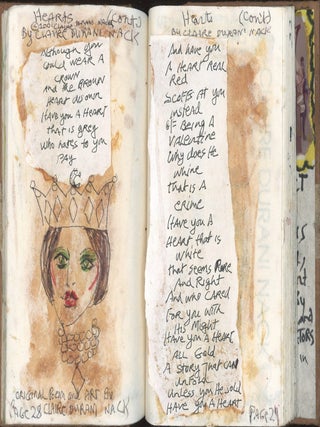 HEARTS (Cont)
©2001 Claire Duran Nack
By CLAIRE DURAN NACK
Although you
could wear A
crown
and the Brown
Heart disown
Have you A Heart
that is grey
who hates to you
pay
original Poem and ART By
PAGE 28 CLAIRE DURAN NACK
Hearts (Con't)
By CLAIRE DURAN NACK
And have you
A Heart Real
Red
Scoffs At you
instead
of Being A
Valentine
Why does He
whine
that is A
crime
Have you A
Heart that is
white
that seems Pure
And Right
And who CARED
For you with
His Might
Have you A Heart
All Gold
A story that can
unfold
unless you Are sold
Have you A Heart
PAGE 29